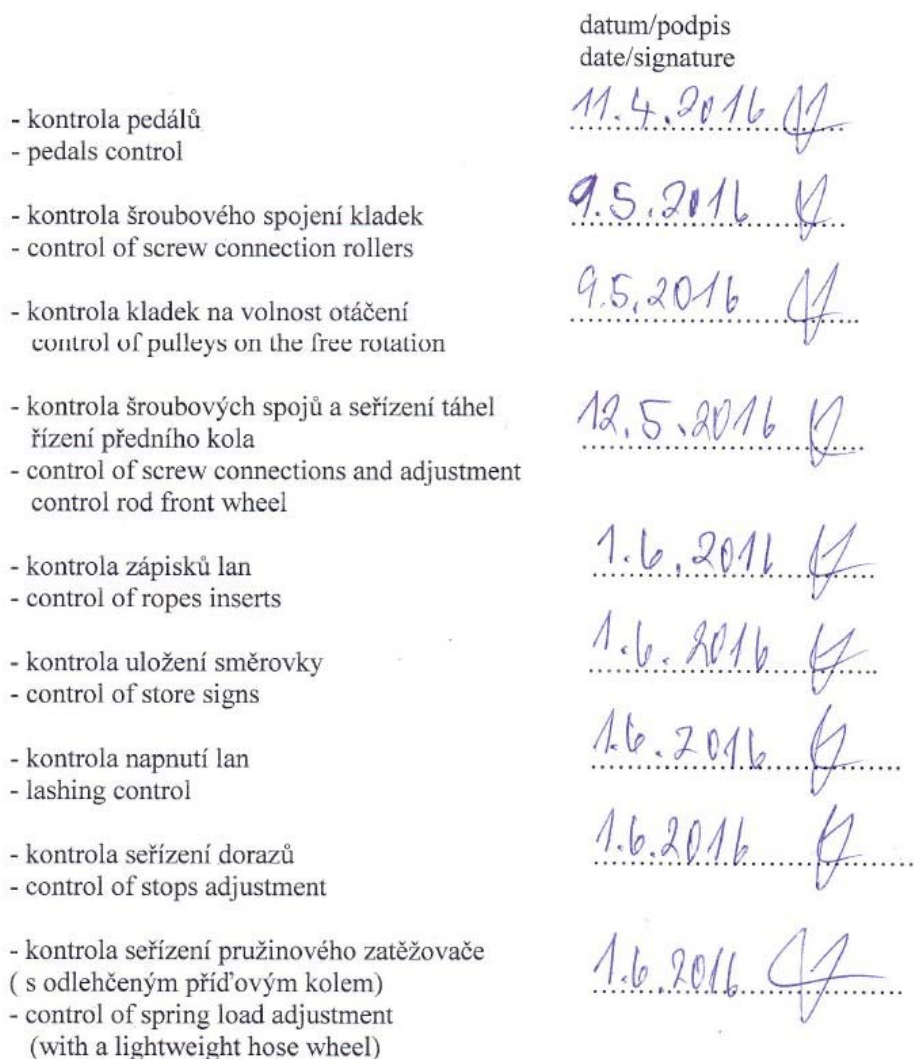 datum/podpis
date/signature
- kontrola pedálů
- pedals control
11.4.2016
- kontrola šroubového spojení kladek
- control of screw connection rollers
9.5.2016
- kontrola kladek na volnost otáčení
control of pulleys on the free rotation
9.5.2016
- kontrola šroubových spojů a seřízení táhel
řízení předního kola
- control of screw connections and adjustment
control rod front wheel
12.5.2016
- kontrola zápisků lan
- control of ropes inserts
1.6.2016
- kontrola uložení směrovky
- control of store signs
1.6.2016
- kontrola napnutí lan
- lashing control
1.6.2016
- kontrola seřízení dorazů
- control of stops adjustment
1.6.2016
- kontrola seřízení pružinového zatěžovače
( s odlehčeným příďovým kolem)
- control of spring load adjustment
(with a lightweight hose wheel)
1.6.2016